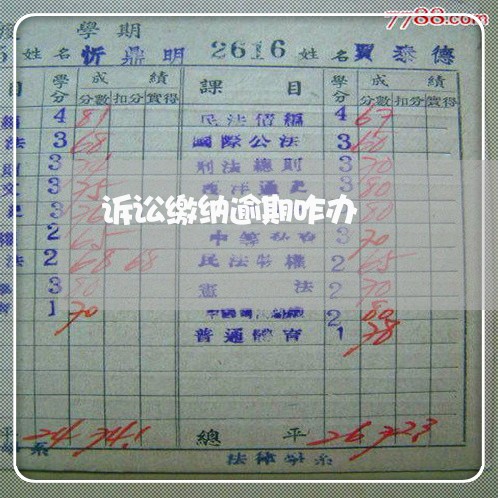 7788.com
學期
姓名 忻鼎明 2616 姓名 賈泰德
目 學分 成績 課目 學分 成績
分數 扣分 實得 分數 扣分 實得
4 81 民法債編 4 67
法 3 68 國際公法 3 60
3 刑法總則 3 70
文 3 75 西洋通史 3 80
史 3
诉讼缴纳逾期咋办
權 2 65 3 70
法 2 68 68 民法物權 2 65
3 80 憲法 2 70
育 1 70 2 80
普通體育 1 78
平 24 74.1 總平 26 72.3
系 法律學系